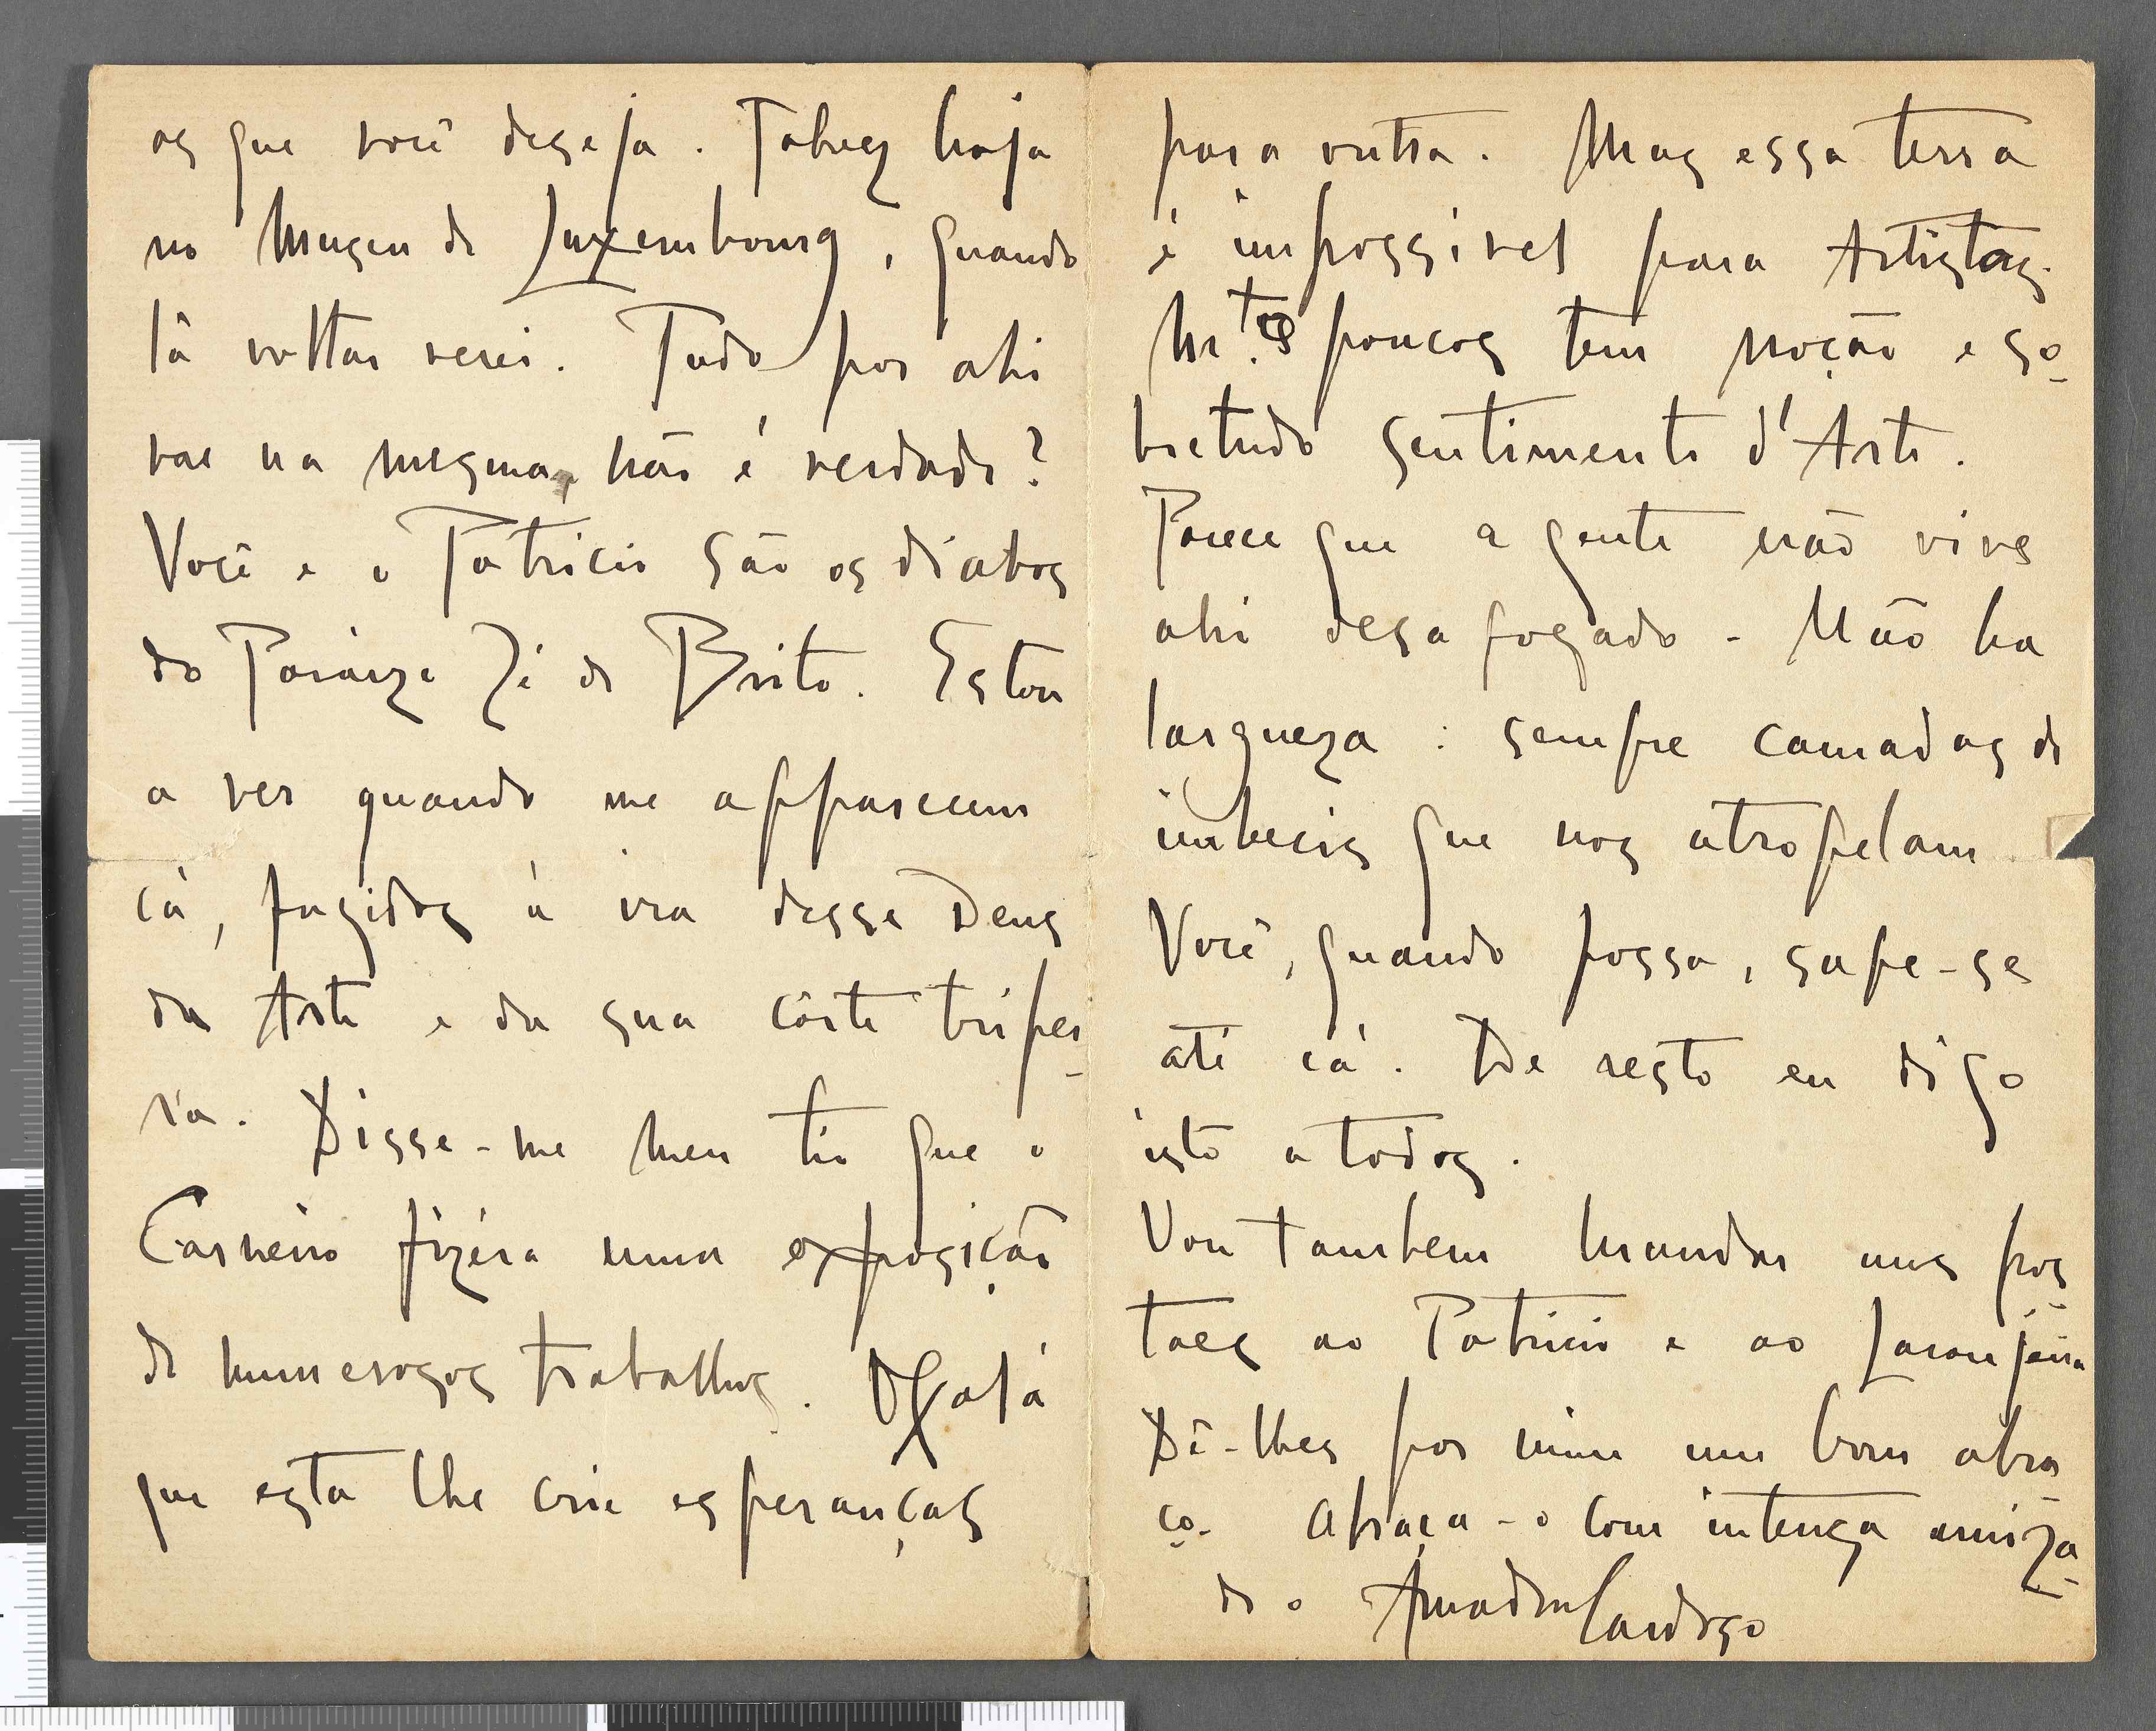 os que você deseja. Talvez haja
no Museu de Luxembourg, quando
lá voltar verei. Tudo por ahi
vae na mesma, não é verdade?
Você e o Patricio são os diabos
do Paraizo Zé de Brito. Estou
a ver quando me apparecem
cá, fugidos á ira desse Deus
da Arte e da sua côrte tripei-
ra. Disse-me meu tio que o
Carneiro fizera uma exposição
de numerosos trabalhos. Oxalá
que esta lhe crie esperanças
para outra. Mas essa terra
é impossivel para Artistas.
M.tos poucos tem noção e so-
bretudo sentimento d'Arte.
Parece que a gente não vive
ahi desafogado. Não ha
largueza: sempre camadas de
imbecis que nos atropelam
Você, quando possa, safe-se
até cá. De resto eu digo
isto a todos.
Vou tambem mandar uns pos-
taes ao Patricio e ao Laranjeira
Dê-lhes por mim um bom abra
ço. Abraça-o com intensa amiza-
de o Amadeu Cardoso